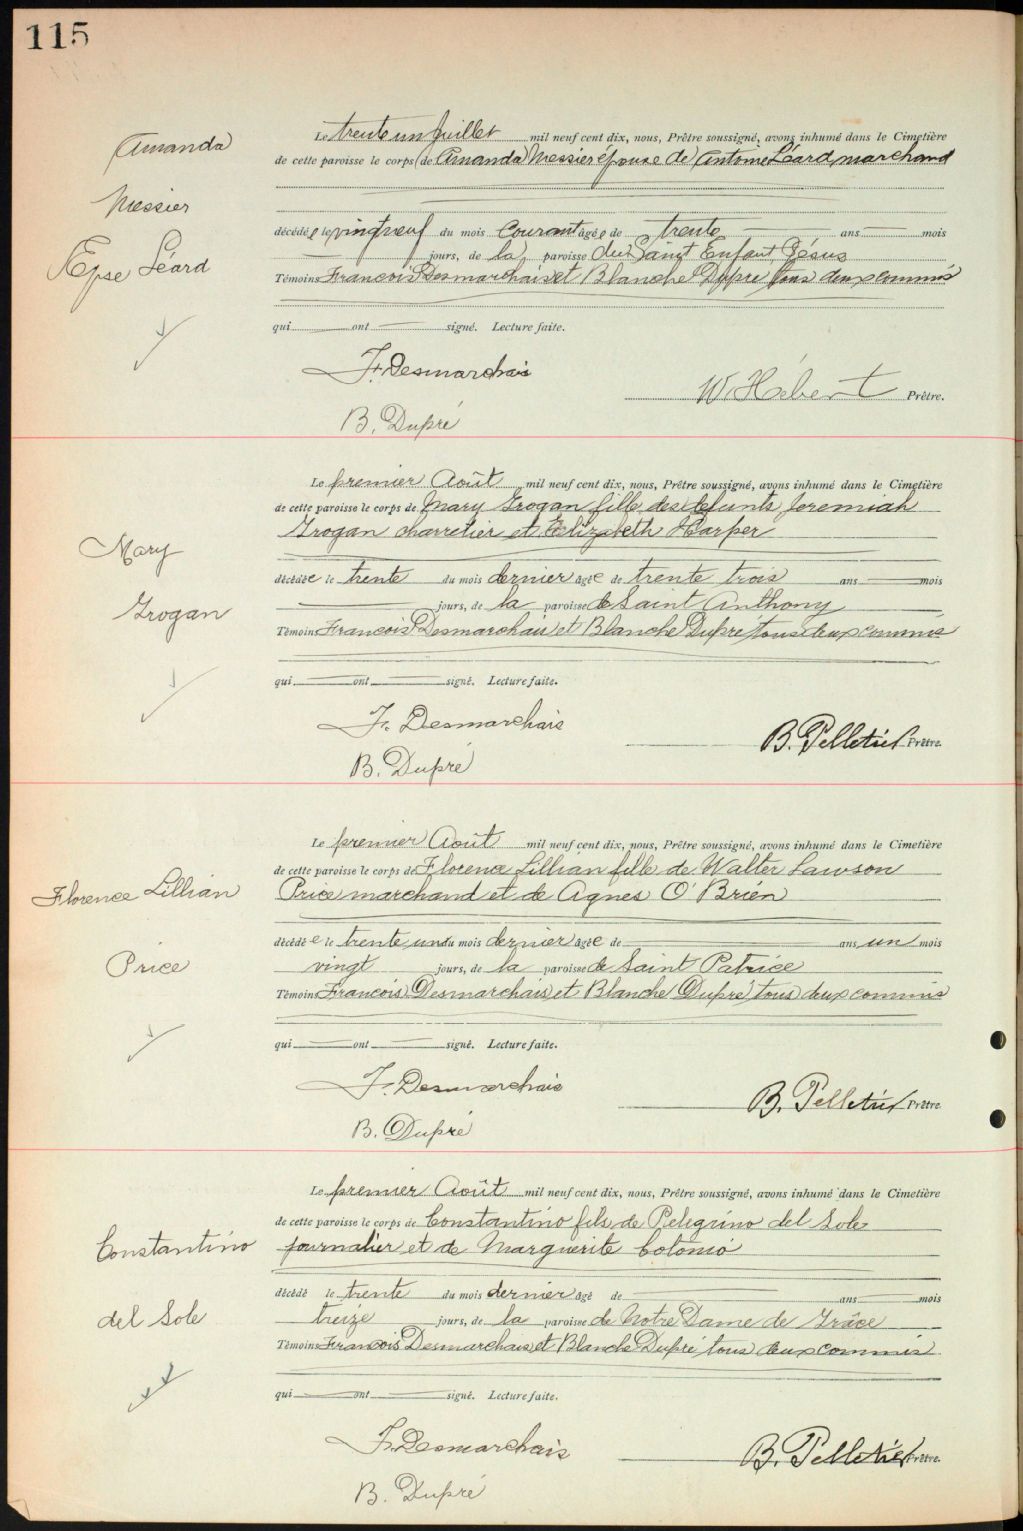 115
Amanda
Messier
Epse Léard
Le trente un Juillet mil neuf cent dix, nous, Prêtre soussigné, avons inhumé dans le Cimetière
de cette paroisse le corps de Amanda Messier épouse de Antoine Léard marchand
décédée le vingtneuf du mois Courant âgée de trente ans mois
jours, de la paroisse du Saint Enfant Jésus
Témoins Francois Desmarchais et Blanche Dupré tous deux commis
qui ont signé. Lecture faite.
F. Desmarchais
W Hébert Prêtre.
B. Dupré
Mary
Grogan
Le premier Août mil neuf cent dix, nous, Prêtre soussigné, avons inhumé dans le Cimetière
de cette paroisse le corps de Mary Grogan fille des defunts Jeremiah
Grogan charretier et Elizabeth Harper
décédée le trente du mois dernier âgée de trente trois ans mois
jours, de la paroisse de Saint Anthony
Témoins Francois Desmarchais et Blanche Dupré tous deux commis
qui ont signé. Lecture faite.
F. Desmarchais
B. Pelletier Prêtre.
B. Dupré
Florence Lillian
Price
Le premier Août mil neuf cent dix, nous, Prêtre soussigné, avons inhumé dans le Cimetière
de cette paroisse le corps de Florence Lillian fille de Walter Lawson
Price marchand et de Agnes O'Brien
décédée le trente un du mois dernier âgée de ans un mois
vingt jours, de la paroisse de Saint Patrice
Témoins Francois Desmarchais et Blanche Dupré tous deux commis
qui ont signé. Lecture faite.
F. Desmarchais
B. Pelletier Prêtre.
B. Dupré
Constantino
del Sole
Le premier Août mil neuf cent dix, nous, Prêtre soussigné, avons inhumé dans le Cimetière
de cette paroisse le corps de Constantino fils de Pelegrino del Sole
journalier et de Marguerite Colonió
décédé le trente du mois dernier âgé de ans mois
treize jours, de la paroisse de Notre Dame de Grâce
Témoins Francois Desmarchais et Blanche Dupré tous deux commis
qui ont signé. Lecture faite.
F. Desmarchais
B. Pelletier Prêtre.
B. Dupré